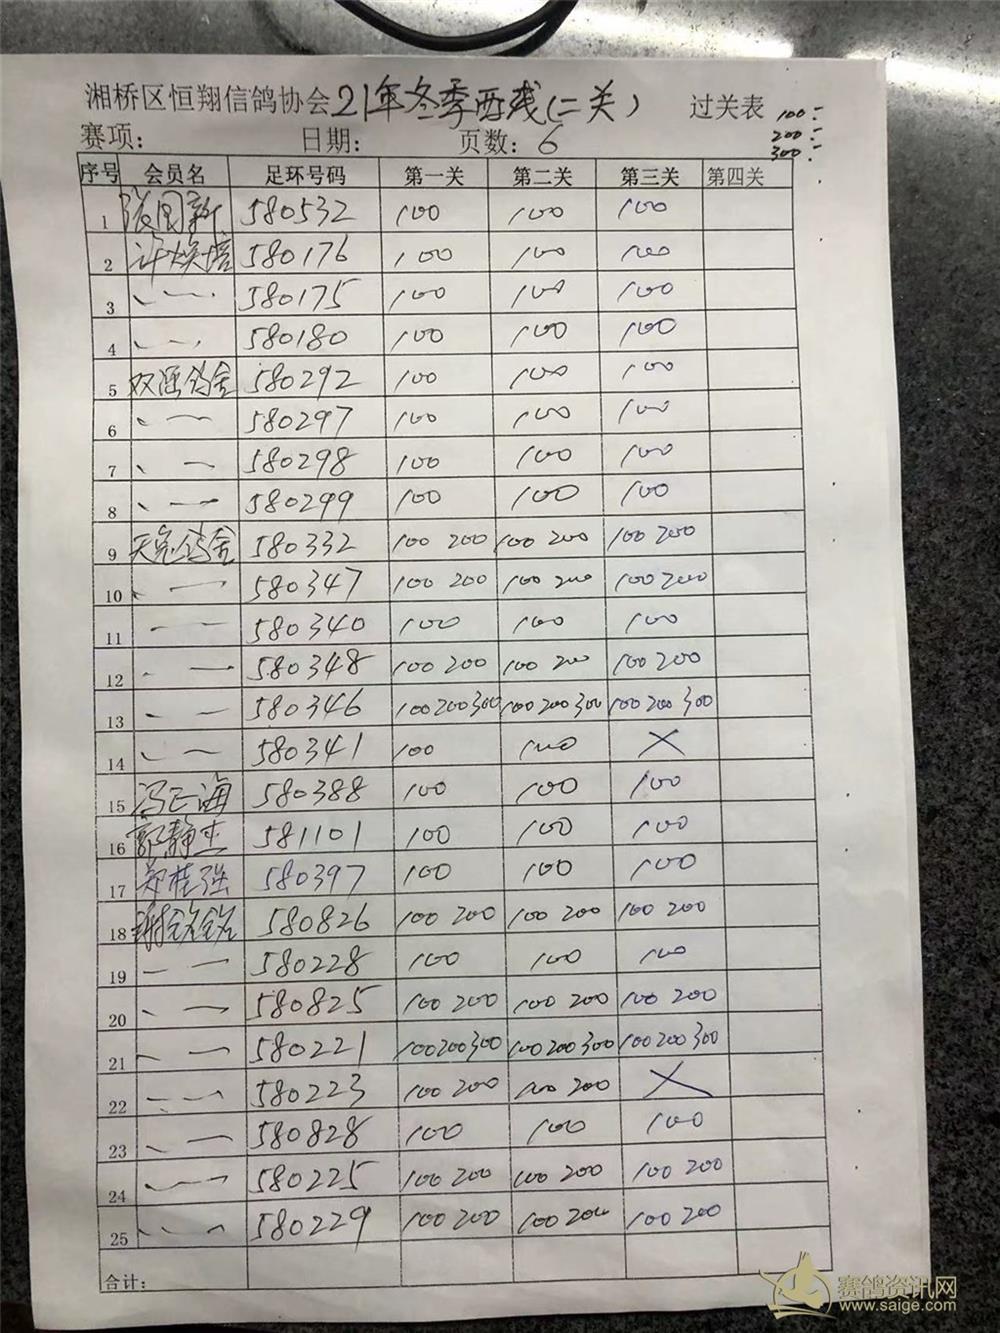 湘桥区恒翔信鸽协会21年冬季西线(二关) 过关表 100:
赛项: 日期: 页数: 6 200:
300:
序号 会员名 足环号码 第一关 第二关 第三关 第四关
1 580532 100 100 100
2 许焕培 580176 100 100 100
3 580175 100 100 100
4 580180 100 100 100
5 双强鸽舍 580292 100 100 100
6 580297 100 100 100
7 580298 100 100 100
8 580299 100 100 100
9 鸽舍 580332 100 200 100 200 100 200
10 580347 100 200 100 200 100 200
11 580340 100 100 100
12 580348 100 200 100 200 100 200
13 580346 100 200 300 100 200 300 100 200 300
14 580341 100 100 ×
15 冯正海 580388 100 100 100
16 郭静 581101 100 100 100
17 郑桂强 580397 100 100 100
18 580826 100 200 100 200 100 200
19 580228 100 100 100
20 580825 100 200 100 200 100 200
21 580221 100 200 300 100 200 300 100 200 300
22 580223 100 200 100 200 ×
23 580828 100 100 100
24 580225 100 200 100 200 100 200
25 580229 100 200 100 200 100 200
合计:
赛鸽资讯网
www.saige.com